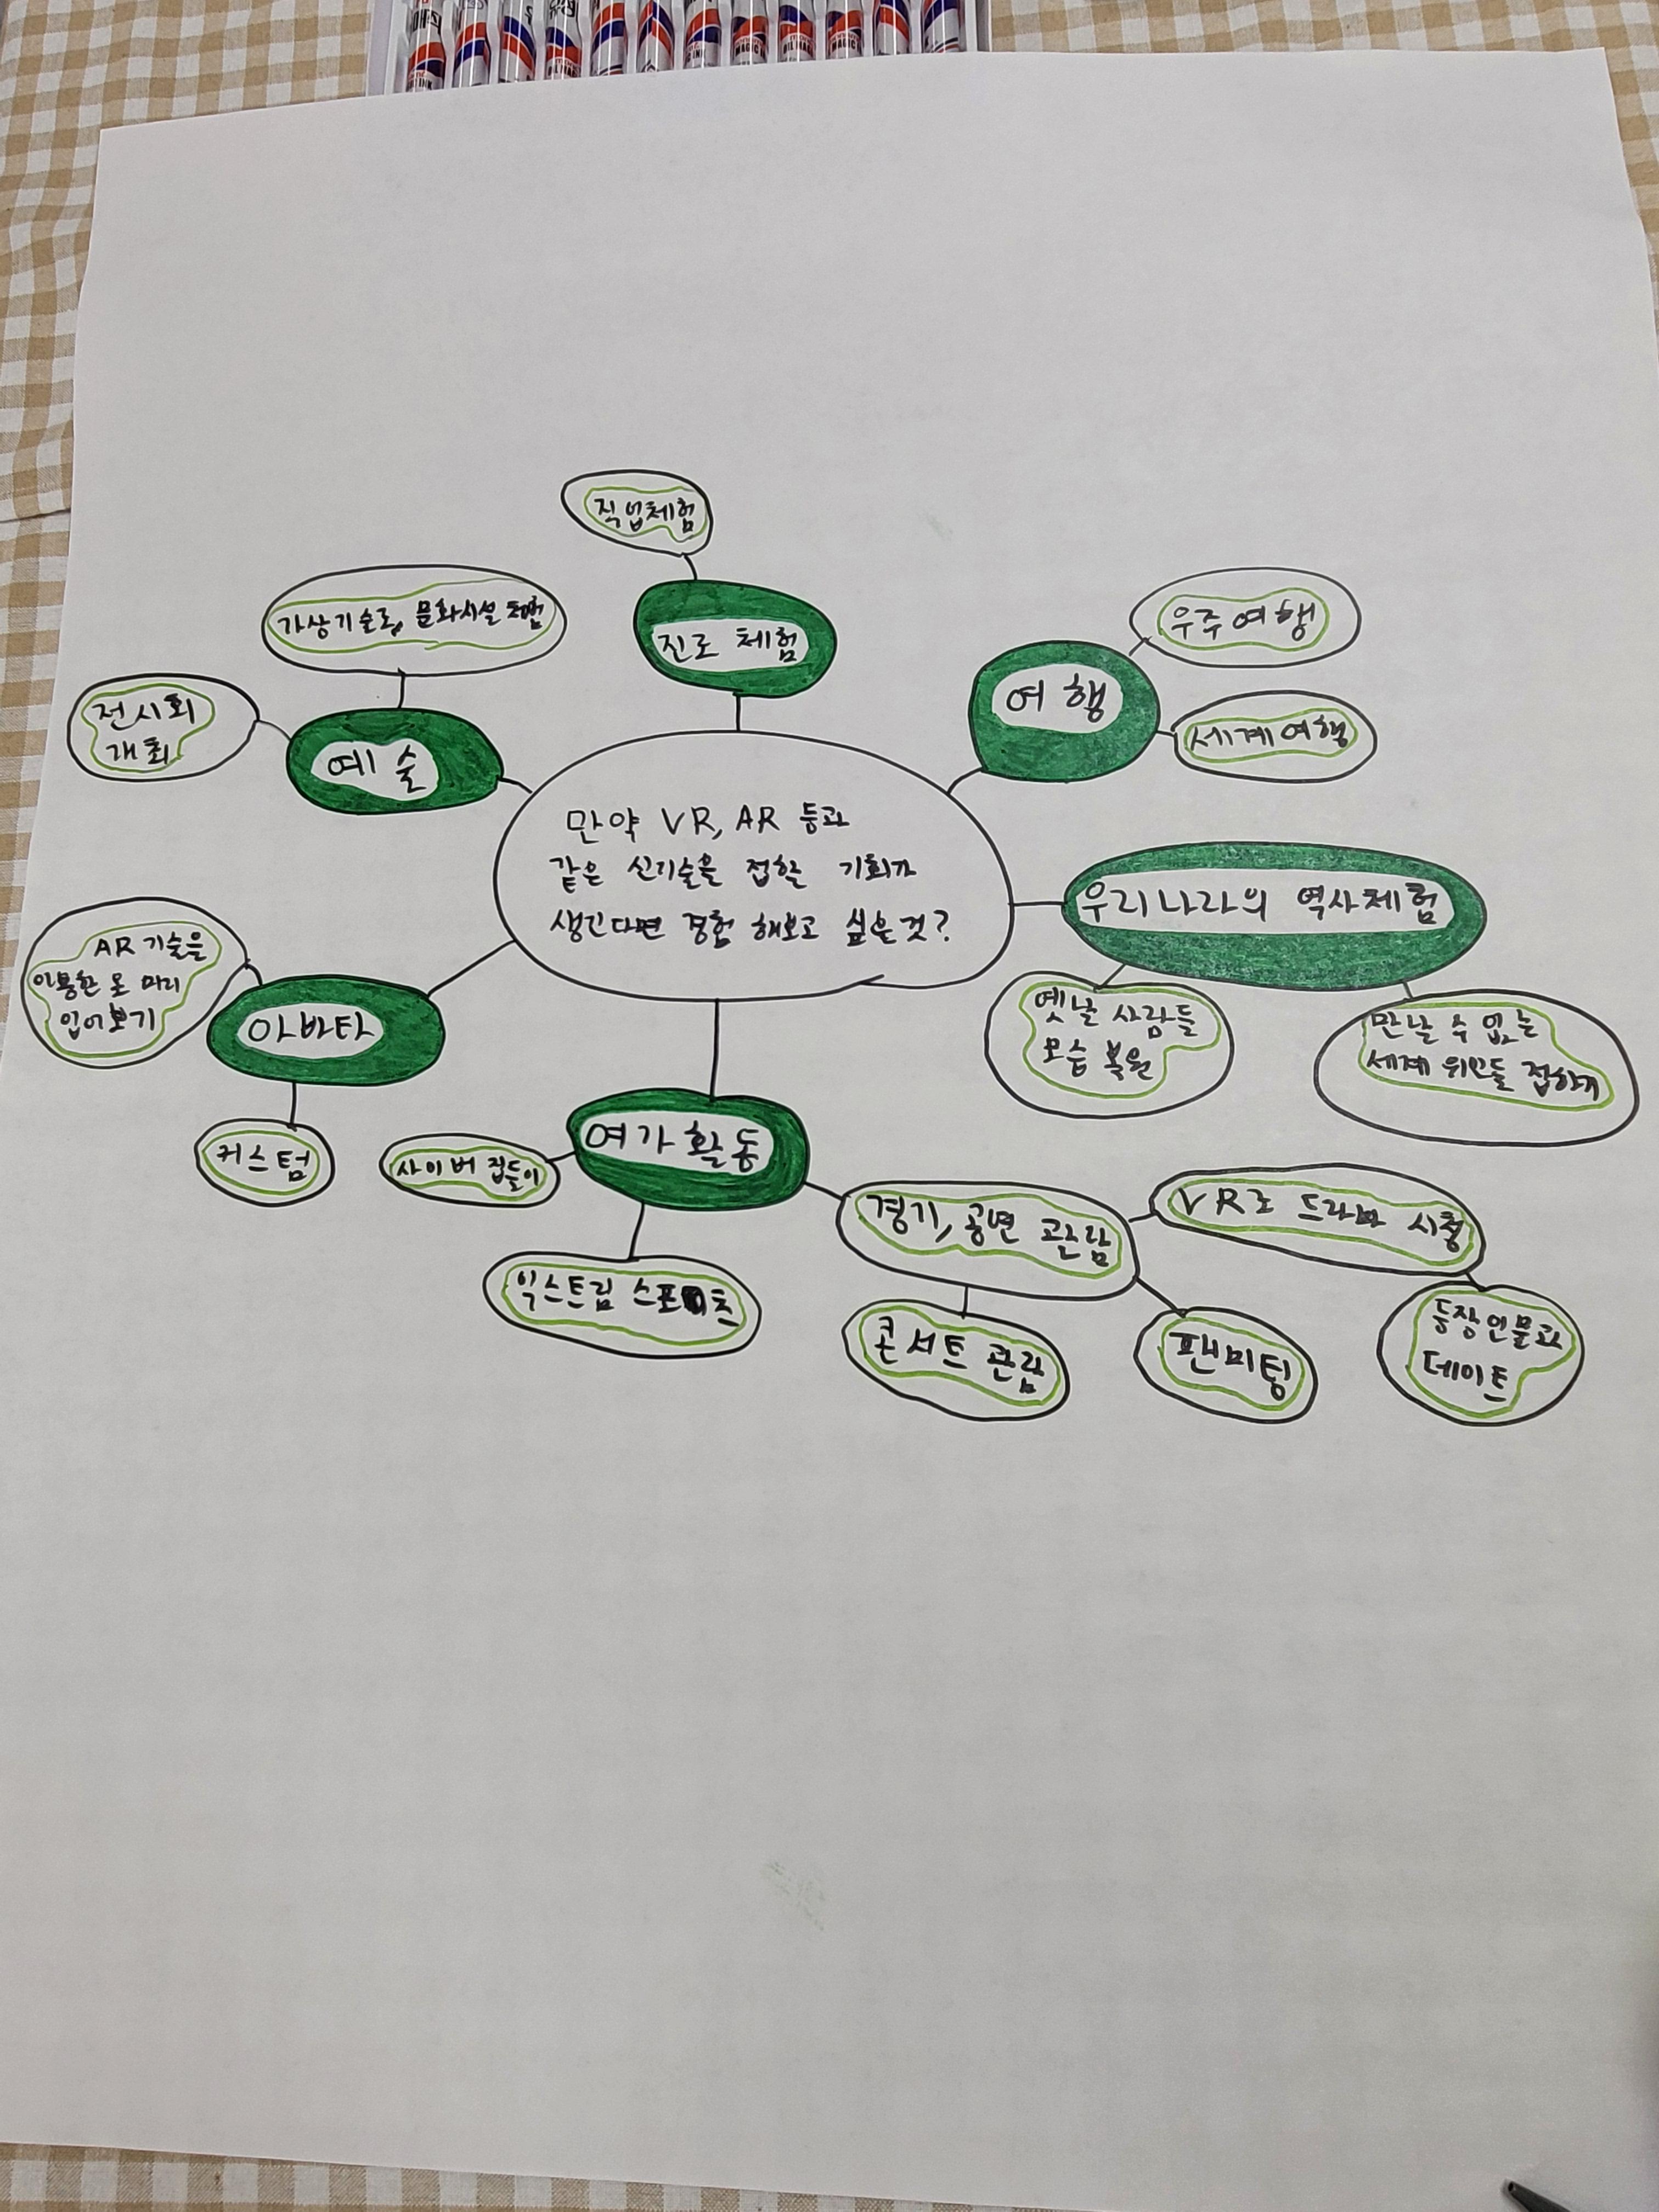 만약 VR, AR 등과
같은 신기술을 접할 기회가
생긴다면 경험 해보고 싶은 것?
진로 체험
직업체험
여행
우주여행
세계여행
우리나라의 역사체험
옛날 사람들
모습 복원
만날 수 없는
세계 위인들 접하기
여가활동
사이버 집들이
익스트림 스포츠
경기, 공연 관람
콘서트 관람
팬미팅
VR로 드라마 시청
등장인물과
데이트
아바타
AR 기술을
이용한 옷 미리
입어보기
커스텀
예술
전시회
개최
가상기술로, 문화시설 체험
MAGIC
MAGIC
MAGIC